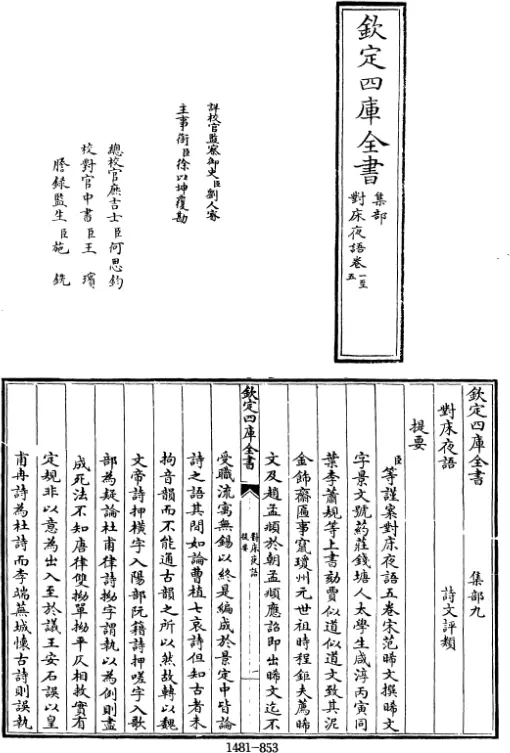 欽定四庫全書
集部
對床夜語卷一至五
詳校官監察御史臣劉人睿
主事銜臣徐以坤覆勘
總校官庶吉士臣何思鈞
校對官中書臣王璸
謄錄監生臣施銑
欽定四庫全書 集部九
對床夜語 詩文評類
提要
臣等謹案對床夜語五卷宋范晞文撰晞文
字景文號葯莊錢塘人太學生咸淳丙寅同
葉李蕭規等上書劾賈似道似道文致其泥
金飾齋匾事竄瓊州元世祖時程鉅夫薦晞
文及趙孟頫於朝孟頫應詔即出晞文迄不
欽定四庫全書
對床夜語
提要
一
受職流寓無錫以終是編成於景定中皆論
詩之語其間如論曹植七哀詩但知古者未
拘音韻而不能通古韻之所以然故轉以魏
文帝詩押橫字入陽部阮籍詩押嗟字入歌
部為疑論杜甫律詩拗字謂執以為例則盡
成死法不知唐律雙拗單拗平仄相救實有
定規非以意為出入至於議王安石誤以皇
甫冉詩為杜詩而李端蕪城懷古詩則誤執
1481-853